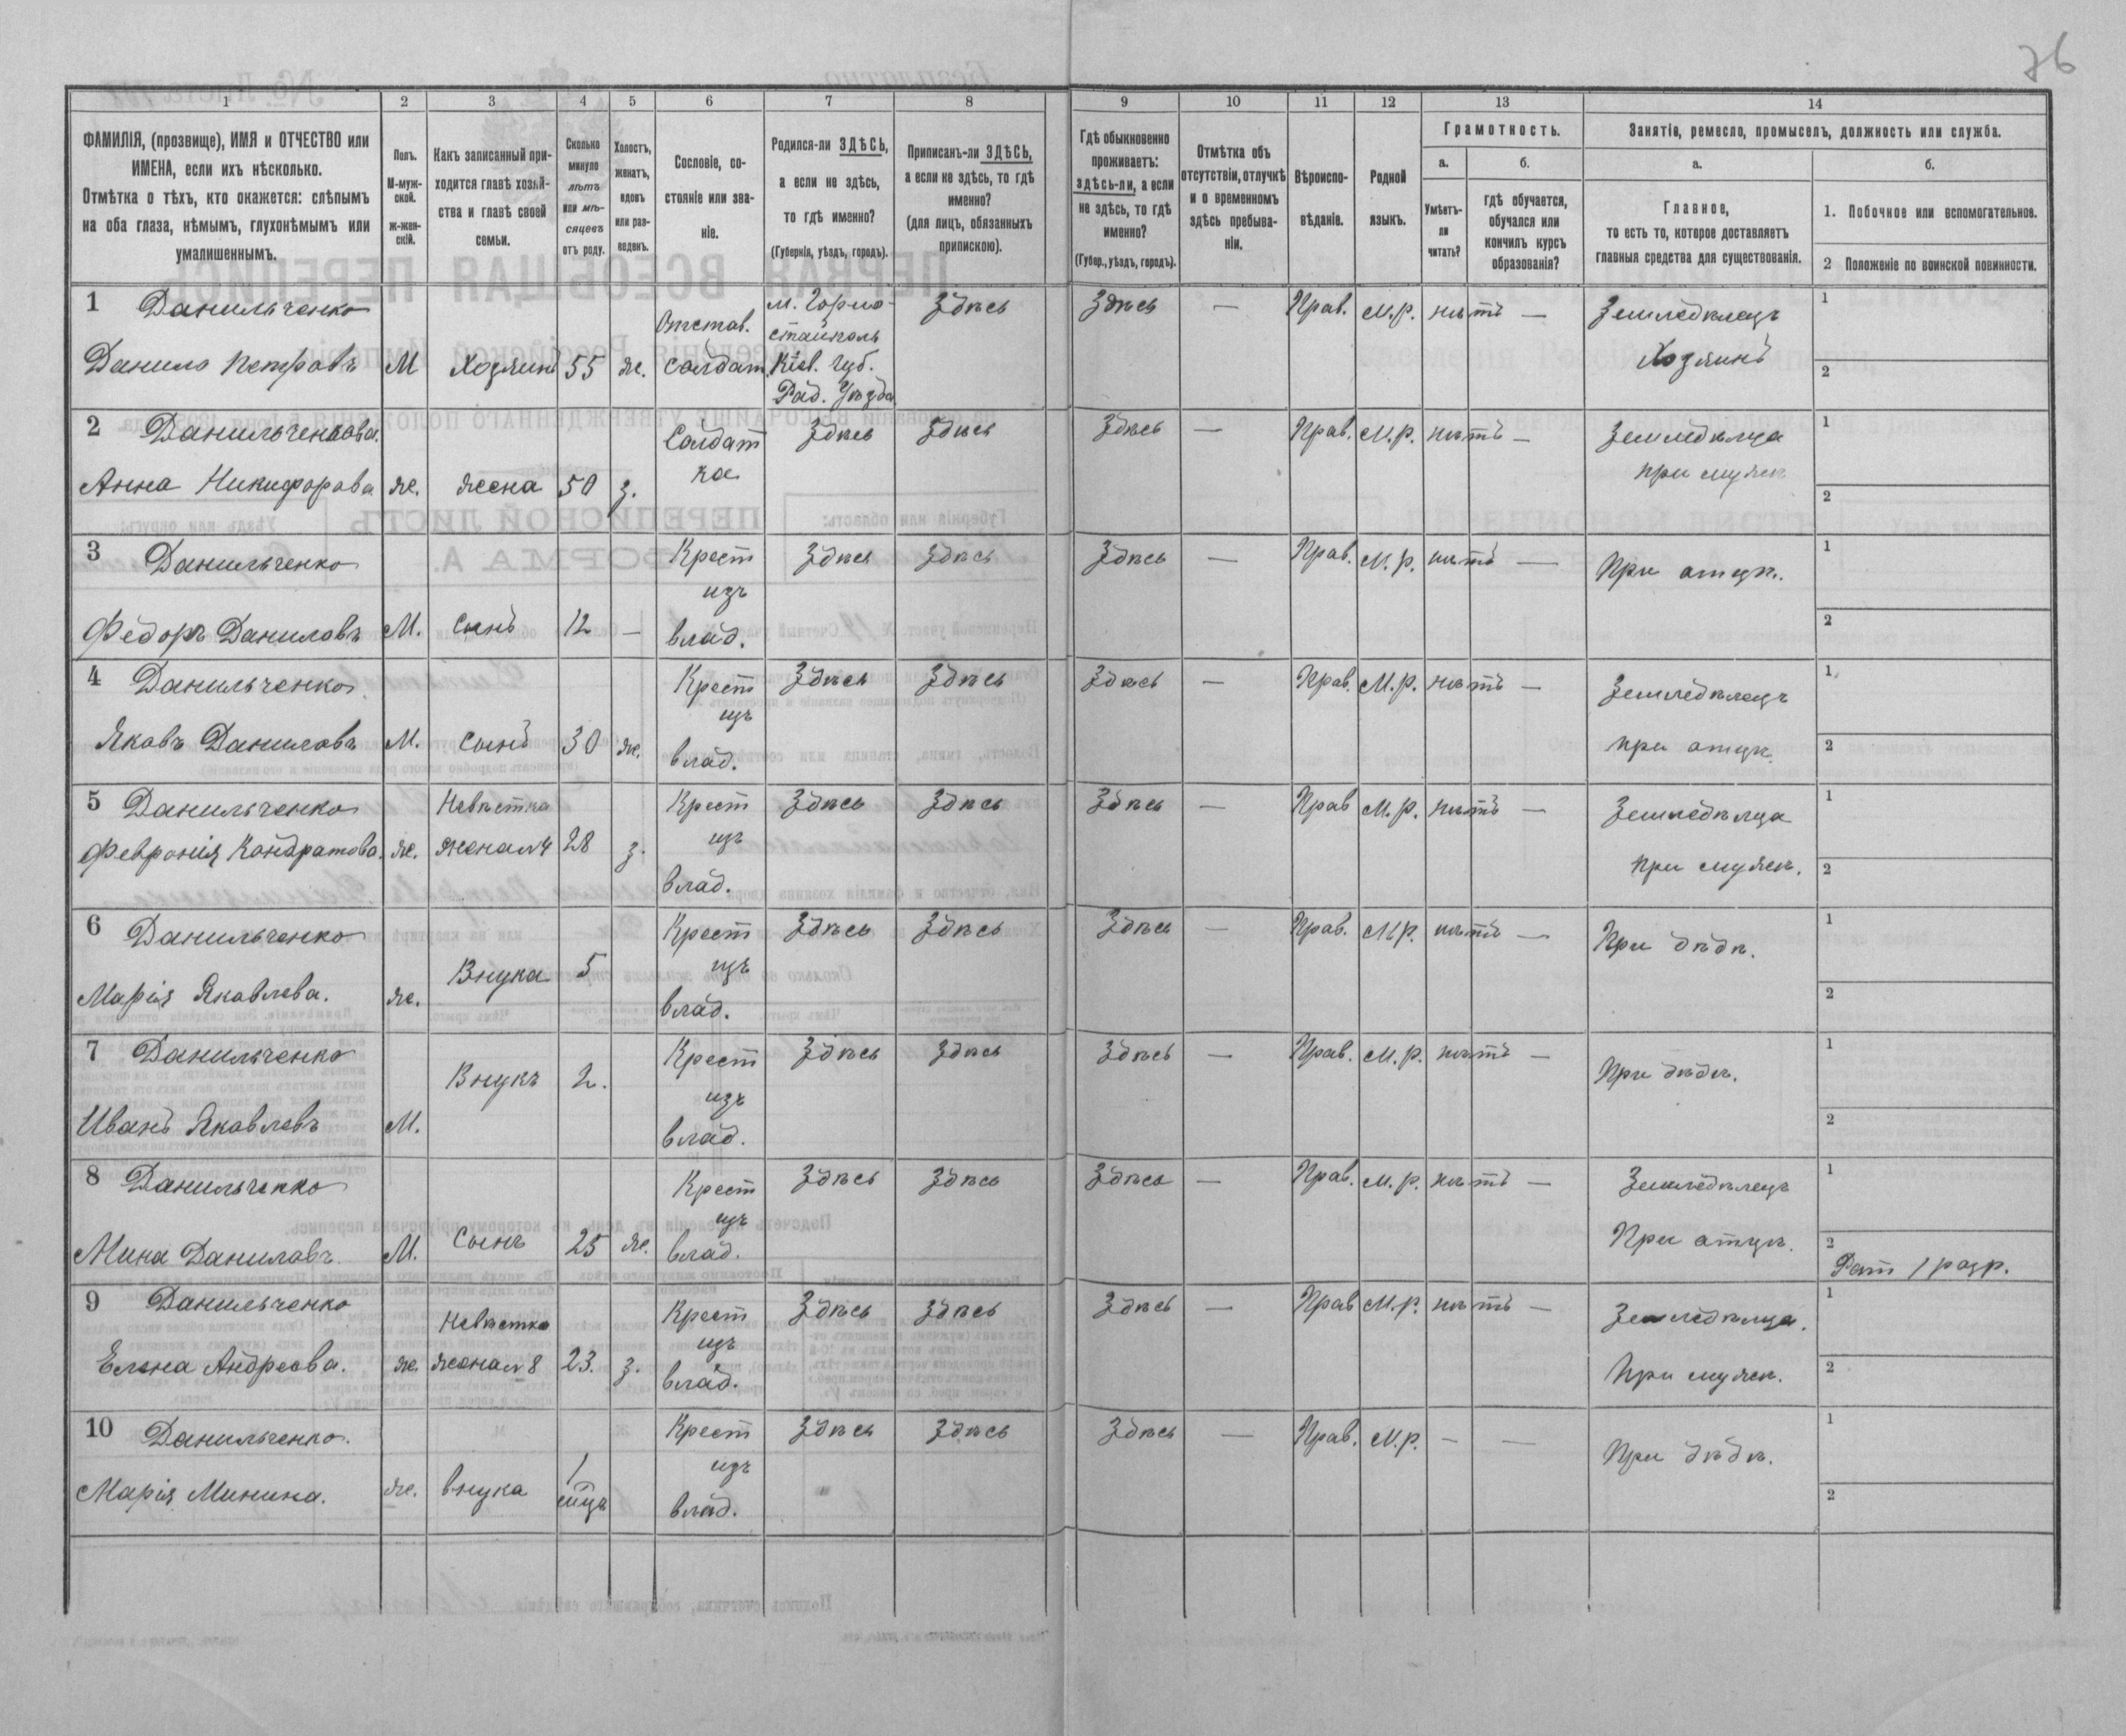 76
1 2 3 4 5 6 7 8 9 10 11 12 13 14
ФАМИЛІЯ, (прозвище), ИМЯ и ОТЧЕСТВО или
ИМЕНА, если ихъ нѣсколько.
Отмѣтка о тѣхъ, кто окажется: слѣпымъ
на оба глаза, нѣмымъ, глухонѣмымъ или
умалишеннымъ.
Полъ.
М-муж-
ской.
ж-жен-
скій.
Какъ записанный при-
ходится главѣ хозяй-
ства и главѣ своей
семьи.
Сколько
минуло
лѣтъ
или мѣ-
сяцевъ
отъ роду.
Холостъ,
женатъ,
вдовъ
или раз-
веденъ.
Сословіе, со-
стояніе или зва-
ніе.
Родился-ли ЗДѢСЬ,
а если не здѣсь,
то гдѣ именно?
(Губернія, уѣздъ, городъ).
Приписанъ-ли ЗДѢСЬ,
а если не здѣсь, то гдѣ
именно?
(для лицъ, обязанныхъ
припискою).
Гдѣ обыкновенно
проживаетъ:
здѣсь-ли, а если
не здѣсь, то гдѣ
именно?
(Губер., уѣздъ, городъ).
Отмѣтка объ
отсутствіи, отлучкѣ
и о временномъ
здѣсь пребыва-
ніи.
Вѣроиспо-
вѣданіе.
Родной
языкъ.
Грамотность.
а. б.
Умѣетъ-
ли
читать?
гдѣ обучается,
обучался или
кончилъ курсъ
образованія?
Занятіе, ремесло, промыселъ, должность или служба.
а. б.
Главное,
то есть то, которое доставляетъ
главныя средства для существованія.
1. Побочное или вспомогательное.
2 Положеніе по воинской повинности.
1 Данильченко
Данило Петровъ
М Хозяинъ 55 ж.
Отстав.
солдат.
м. Горно-
стайполь
Кіев. Губ.
Рад. Уѣзда
Здѣсь Здѣсь — Прав. М.р. нѣтъ —
Земледѣлецъ
Хозяинъ
1
2
2 Данильченкова.
Анна Никифорова
же. жена 50 з.
Солдат
ка
Здѣсь Здѣсь Здѣсь — Прав. М.р. нѣтъ —
Земледѣлца
при мужѣ
1
2
3 Данильченко
Федоръ Даниловъ
М. Сынъ 12 —
Крест
изъ
влад.
Здѣсь Здѣсь Здѣсь — Прав. М.р. нѣтъ —
При отцѣ.
1
2
4 Данильченко
Яковъ Даниловъ
М. Сынъ 30 ж.
Крест
изъ
влад.
Здѣсь Здѣсь Здѣсь — Прав. М.р. нѣтъ —
Земледѣлецъ
при отцѣ.
1
2
5 Данильченко
Февронія Кондратова.
же.
Невѣстка
жена №4
28 з.
Крест
изъ
влад.
Здѣсь Здѣсь Здѣсь — Прав М.р. нѣтъ —
Земледѣлца
при мужѣ.
1
2
6 Данильченко
Марія Яковлева.
же. Внука 5
Крест
изъ
влад.
Здѣсь Здѣсь Здѣсь — Прав. М.р. нѣтъ —
При дѣдѣ.
1
2
7 Данильченко
Иванъ Яковлевъ
М. Внукъ 2.
Крест
изъ
влад.
Здѣсь Здѣсь Здѣсь — Прав. М.р. нѣтъ —
При дѣдѣ.
1
2
8 Данильченко
Мина Даниловъ.
М. Сынъ 25 ж.
Крест
изъ
влад.
Здѣсь Здѣсь Здѣсь — Прав. М.р. нѣтъ —
Земледѣлецъ
При отцѣ.
1
2
Рат 1 разр.
9 Данильченко
Елена Андреева.
же.
Невѣстка
жена №8
23. з.
Крест
изъ
влад.
Здѣсь Здѣсь Здѣсь — Прав М.р. нѣтъ —
Земледѣлца.
При мужѣ.
1
2
10 Данильченко.
Марія Минина.
же. внука
1
мѣць
Крест
изъ
влад.
Здѣсь Здѣсь Здѣсь — Прав. М.р. — —
При дѣдѣ.
1
2